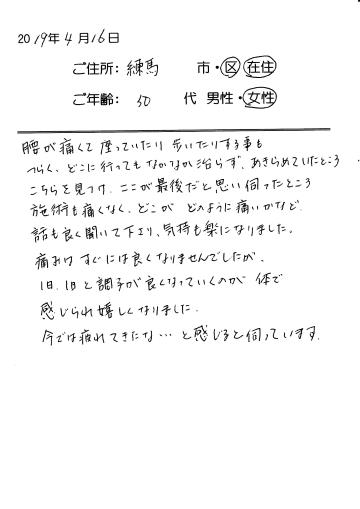 2019年4月16日
ご住所: 練馬 市・区 在住
ご年齢: 50 代 男性・女性
腰が痛くて座っていたり歩いたりする事も
つらく、どこに行ってもなかなか治らず、あきらめていたところ
こちらを見つけ、ここが最後だと思い伺ったところ
施術も痛くなく、どこがどのように痛いかなど、
話も良く聞いて下さり、気持も楽になりました。
痛みはすぐには良くなりませんでしたが、
1日、1日と調子が良くなっていくのが体で
感じられ嬉しくなりました。
今では疲れてきたな…と感じると伺っています。